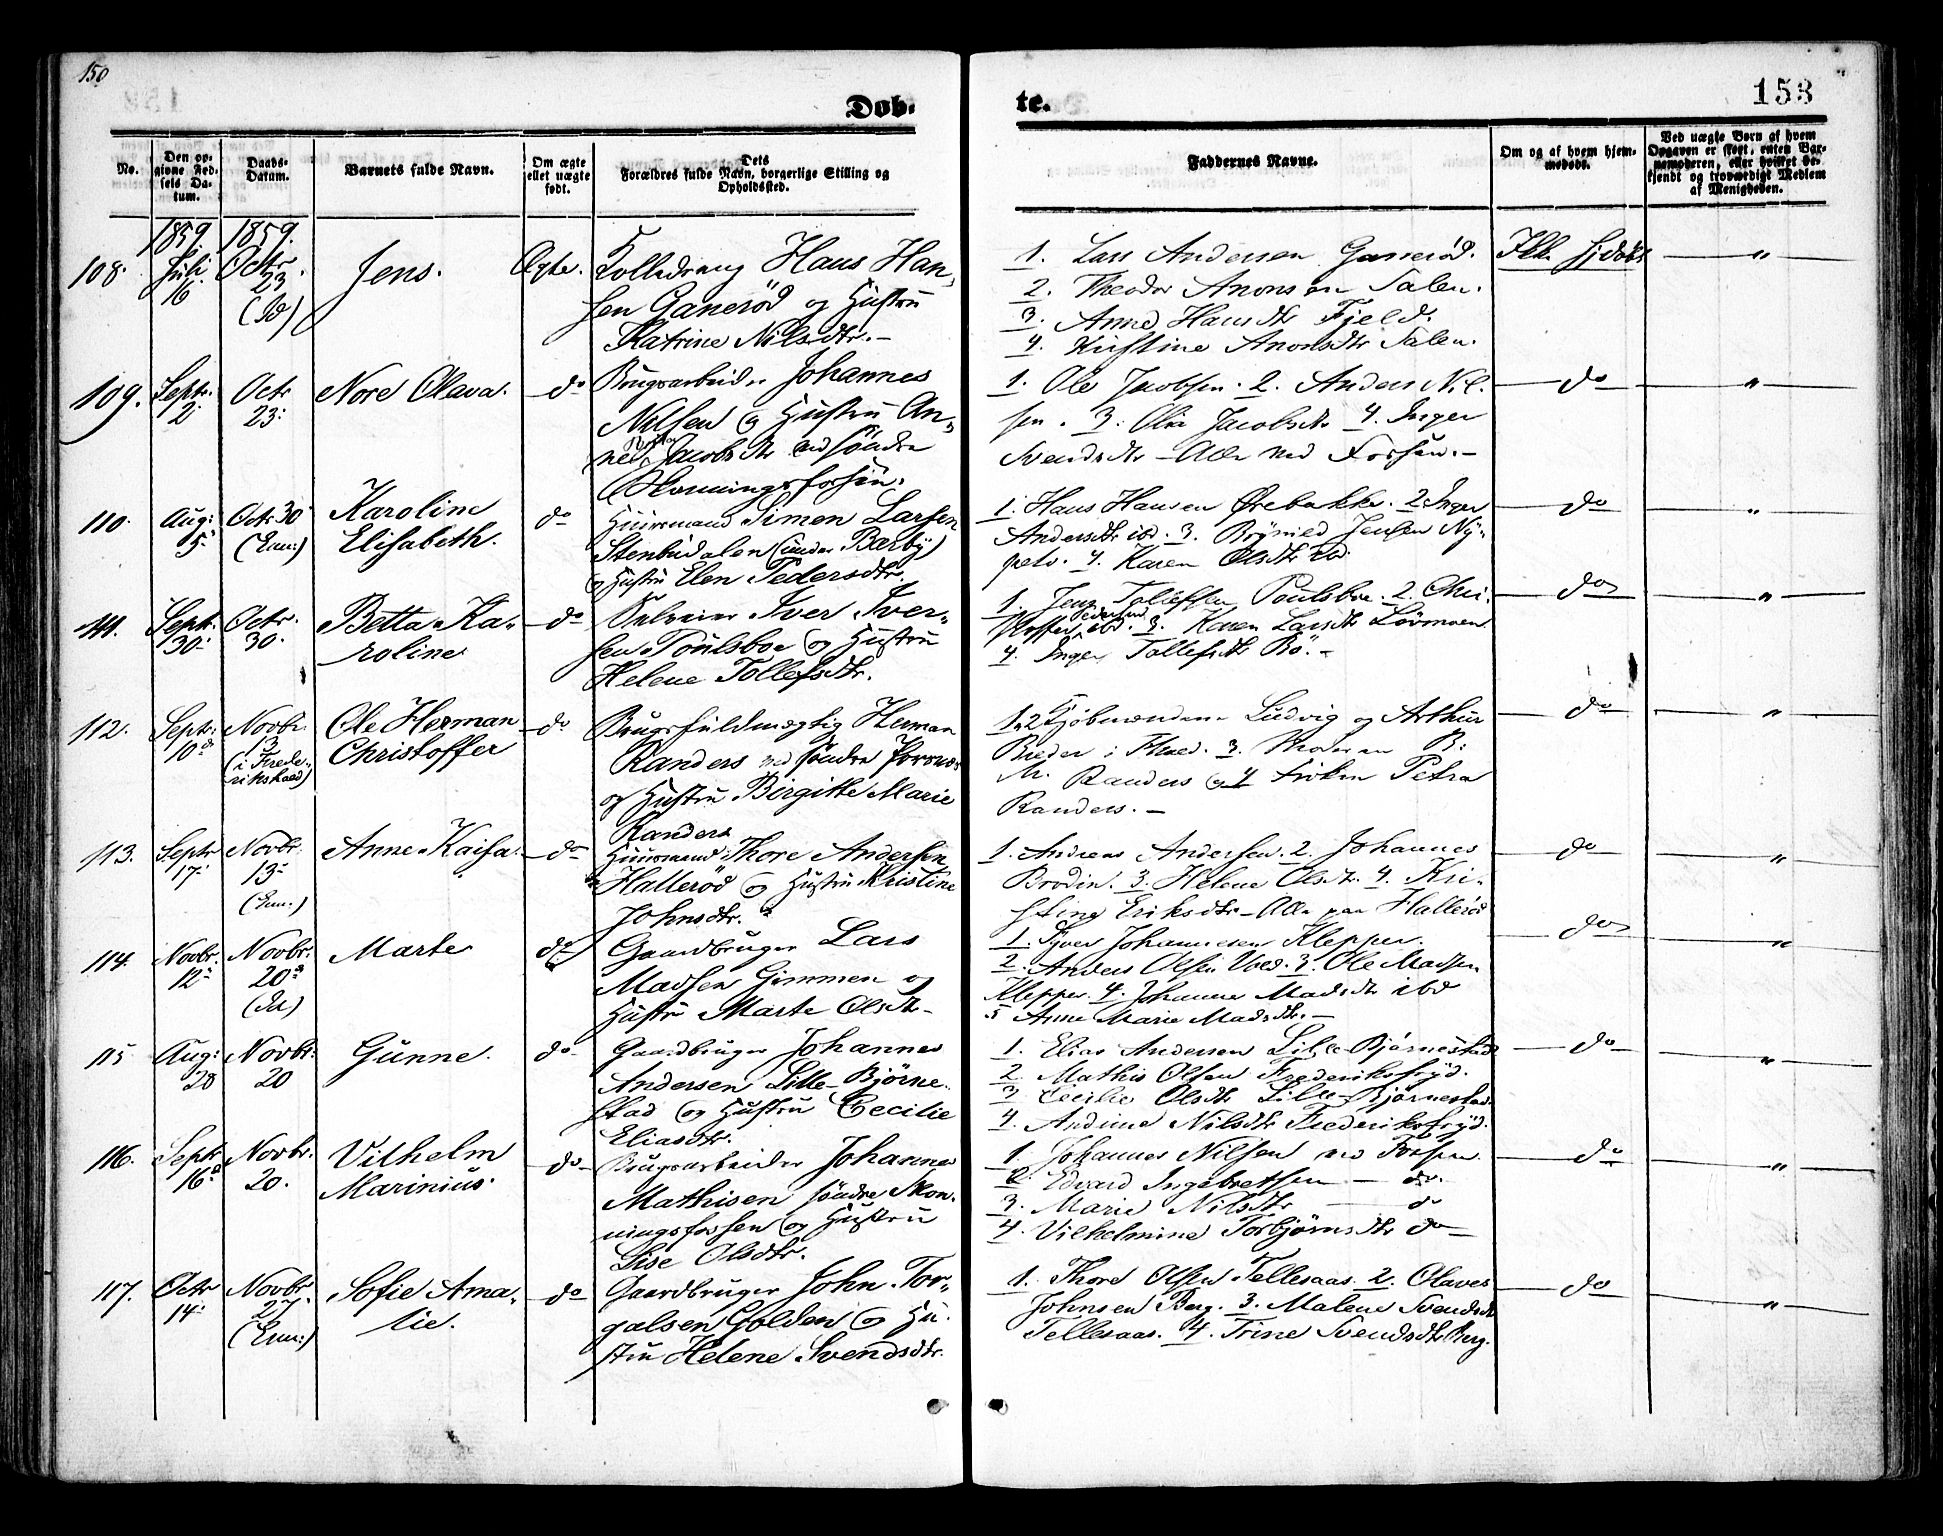 150
153
Døb-
te.
No.
Den op-
givne Fød-
sels Da-
tum.
Daabs-
Datum.
Barnets fulde Navn.
Om ægte
ellet uægte
født.
Dets
Forældres fulde Navn, borgerlige Stilling og
Opholdssted.
Faddernes Navne.
Om og af hvem hjem-
medøbt.
Ved uægte Børn af hvem
Opgaven er skeet, enten Bar-
nemoderen, eller hvilket be-
kjendt og troværdigt Medlem
af Menigheden.
1859. 1859.
108. Juli 16 Octr. 23. (Id) Jens. Ægte. Hans Han-
sen Ganerød og Hustru
Katrine Nilsdtr. -
1. Lars Andersen Ganerød. Ikke hjdøbt "
2. Theodor Aronsen Talen.
3. Anne Hansdtr Fjeld.
4. Kirstine Aronsdtr Talen.
109. Septr. 2. Octr 23. Nore Olava. do Brugsarbeider Johannes
Nilsen og Hustru An-
ne Jacobsdtr ved søndre
Skonningsfossen.
1. Ole Jacobsen. 2. Anders Nil- do "
sen. 3. Olia Jacobsdtr 4. Inger
Svendsdtr - Alle ved Fossen. -
110. Aug. 5. Octr 30 (Enn.) Karoline
Elisabeth. do Huusmand Simen Larsen
Stenbudalen (under Barby)
og Hustru Elen Pedersdtr.
1. Hans Hansen Ørebakke. 2 Inger do "
Andersdtr ibd. 3. Brynild Jensen Ny-
pels. 4. Karen Olsdtr ibd
111. Septr. 30. Octr. 30. Betta Ka-
roline do Selveier Iver Iver-
sen Poulsboe og Hustru
Helene Tollefsdtr.
1. Jens Tollefsen Poulsboe. 2. Chri- do "
stoffer Pedersen ibd. 3. Karen Larsdtr Løvmoen
4. Inger Tollefsdtr Bø. -
112. Septr. 10de Novbr. 3 (i Frede-
rikshald) Ole Herman
Christoffer do Brugsfuldmægtig Herman
Randers ved søndre
og Hustru Birgitte Marie
Randers
1 & 2 Kjøbmændene Ludvig og Arthur do "
i Fhald. 3. B.
M. Randers og 4 Frøken Petra
Randers. -
113. Septr 17 Novbr. 13. (Enn.) Anne Kaisa. do Huusmand Thore Andersen
Hallerød og Hustru Kristine
Johnsdtr.
1. Andreas Andersen. 2. Johannes do "
Brodin. 3. Helene Olsdtr. 4. Kri-
stine Eriksdtr - Alle paa Hallerød
114. Novbr. 12. Novbr. 20de (Id) Marte do Gaardbruger Lars
Madsen Gimmen og
Hustru Marte Olsdtr -
1. Syver Johannesen Klepper. do "
2. Anders Olsen Ibd. 3. Ole Madsen
Klepper. 4. Johanne Madsdtr ibd
5 Anne Marie Madsdtr. -
115 Aug. 28 Novbr. 20 Gunne. do Gaardbruger Johannes
Andersen Lille-Bjørne-
stad og Hustru Cecilie
Eliasdtr.
1. Elias Andersen Lille Bjørnestad do "
2. Mathis Olsen Frederiksfryd.
3 Cecilie Olsdtr Lille-Bjørnestad
4. Andrine Nilsdtr Frederiksfryd.
116. Septr 16d Novbr. 20. Vilhelm
Marinius. do Brugsarbeider Johannes
Mathisen søndre Skon-
ningsfossen og Hustru
Lise Olsdtr.
1. Johannes Nilsen ved Fossen do "
2. Edvard Ingebretsen - do.
3. Marie Nilsdtr do
4. Vilhelmine Torbjørnsdtr do
117. Octr 14. Novbr. 27. (Enn.) Sofie Ama-
lie. do Gaardbruger John Tor-
galsen Golden og Hu-
stru Helene Svendsdtr.
1. Thore Olsen Tellesaas. 2. Olaves do "
Johnsen Berg. 3. Malene Svendsdtr
Tellesaas. 4. Trine Svendsdtr Berg.